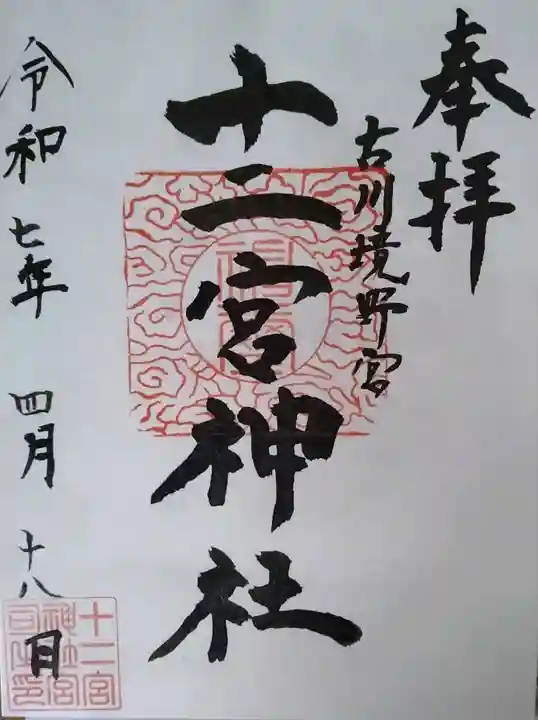 奉拝
古川境野宮
十二宮神社
令和七年 四月 十八日
十二宮
神社宮
司之印